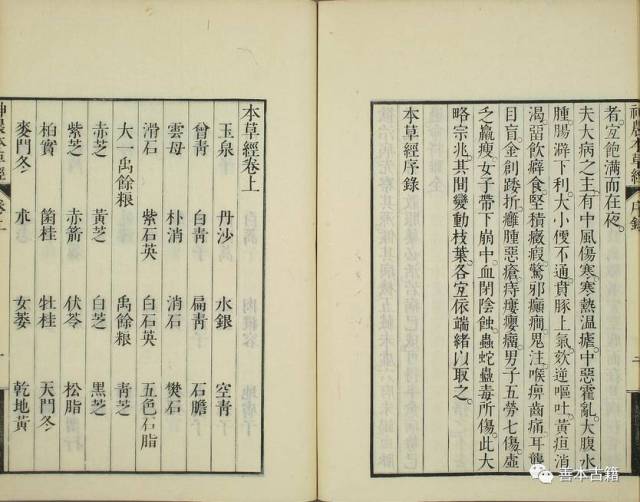 神農本草經 序錄 二
者宐飽滿而在夜。
夫大病之主有中風傷寒寒熱溫瘧。中惡霍亂。大腹水
腫腸澼下利。大小便不通賁豚上氣欬逆嘔吐。黃疸消
渴畱飲癖食堅積癥瘕驚邪癲癎鬼注喉痹齒痛耳聾
目盲金創踒折。癰腫惡瘡痔瘻癭瘤。男子五勞七傷。虛
乏羸瘦女子帶下崩中。血閉陰蝕。蟲蛇蠱毒所傷。此大
略宗兆。其間變動枝葉。各宐依端緒以取之。
本草經序錄
本草經卷上
玉泉 丹沙 水銀 空青
曾青 白青 扁青 石膽
雲母 朴消 消石 樊石
滑石 紫石英 白石英 五色石脂
大一禹餘粮 禹餘粮 青芝
赤芝 黃芝 白芝 黑芝
紫芝 赤箭 伏苓 松脂
柏實 箘桂 牡桂 天門冬
麥門冬 朮 女萎 乾地黃
神農本草經 卷上 一
善本古籍